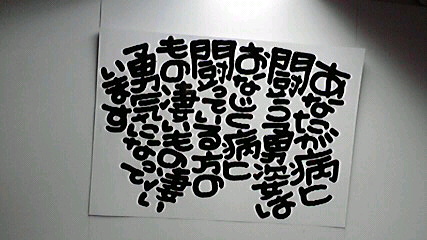 あなたが病と
闘う勇姿は
おなじく病と
闘っている方の
もの凄いもの凄
い勇気になってい
います